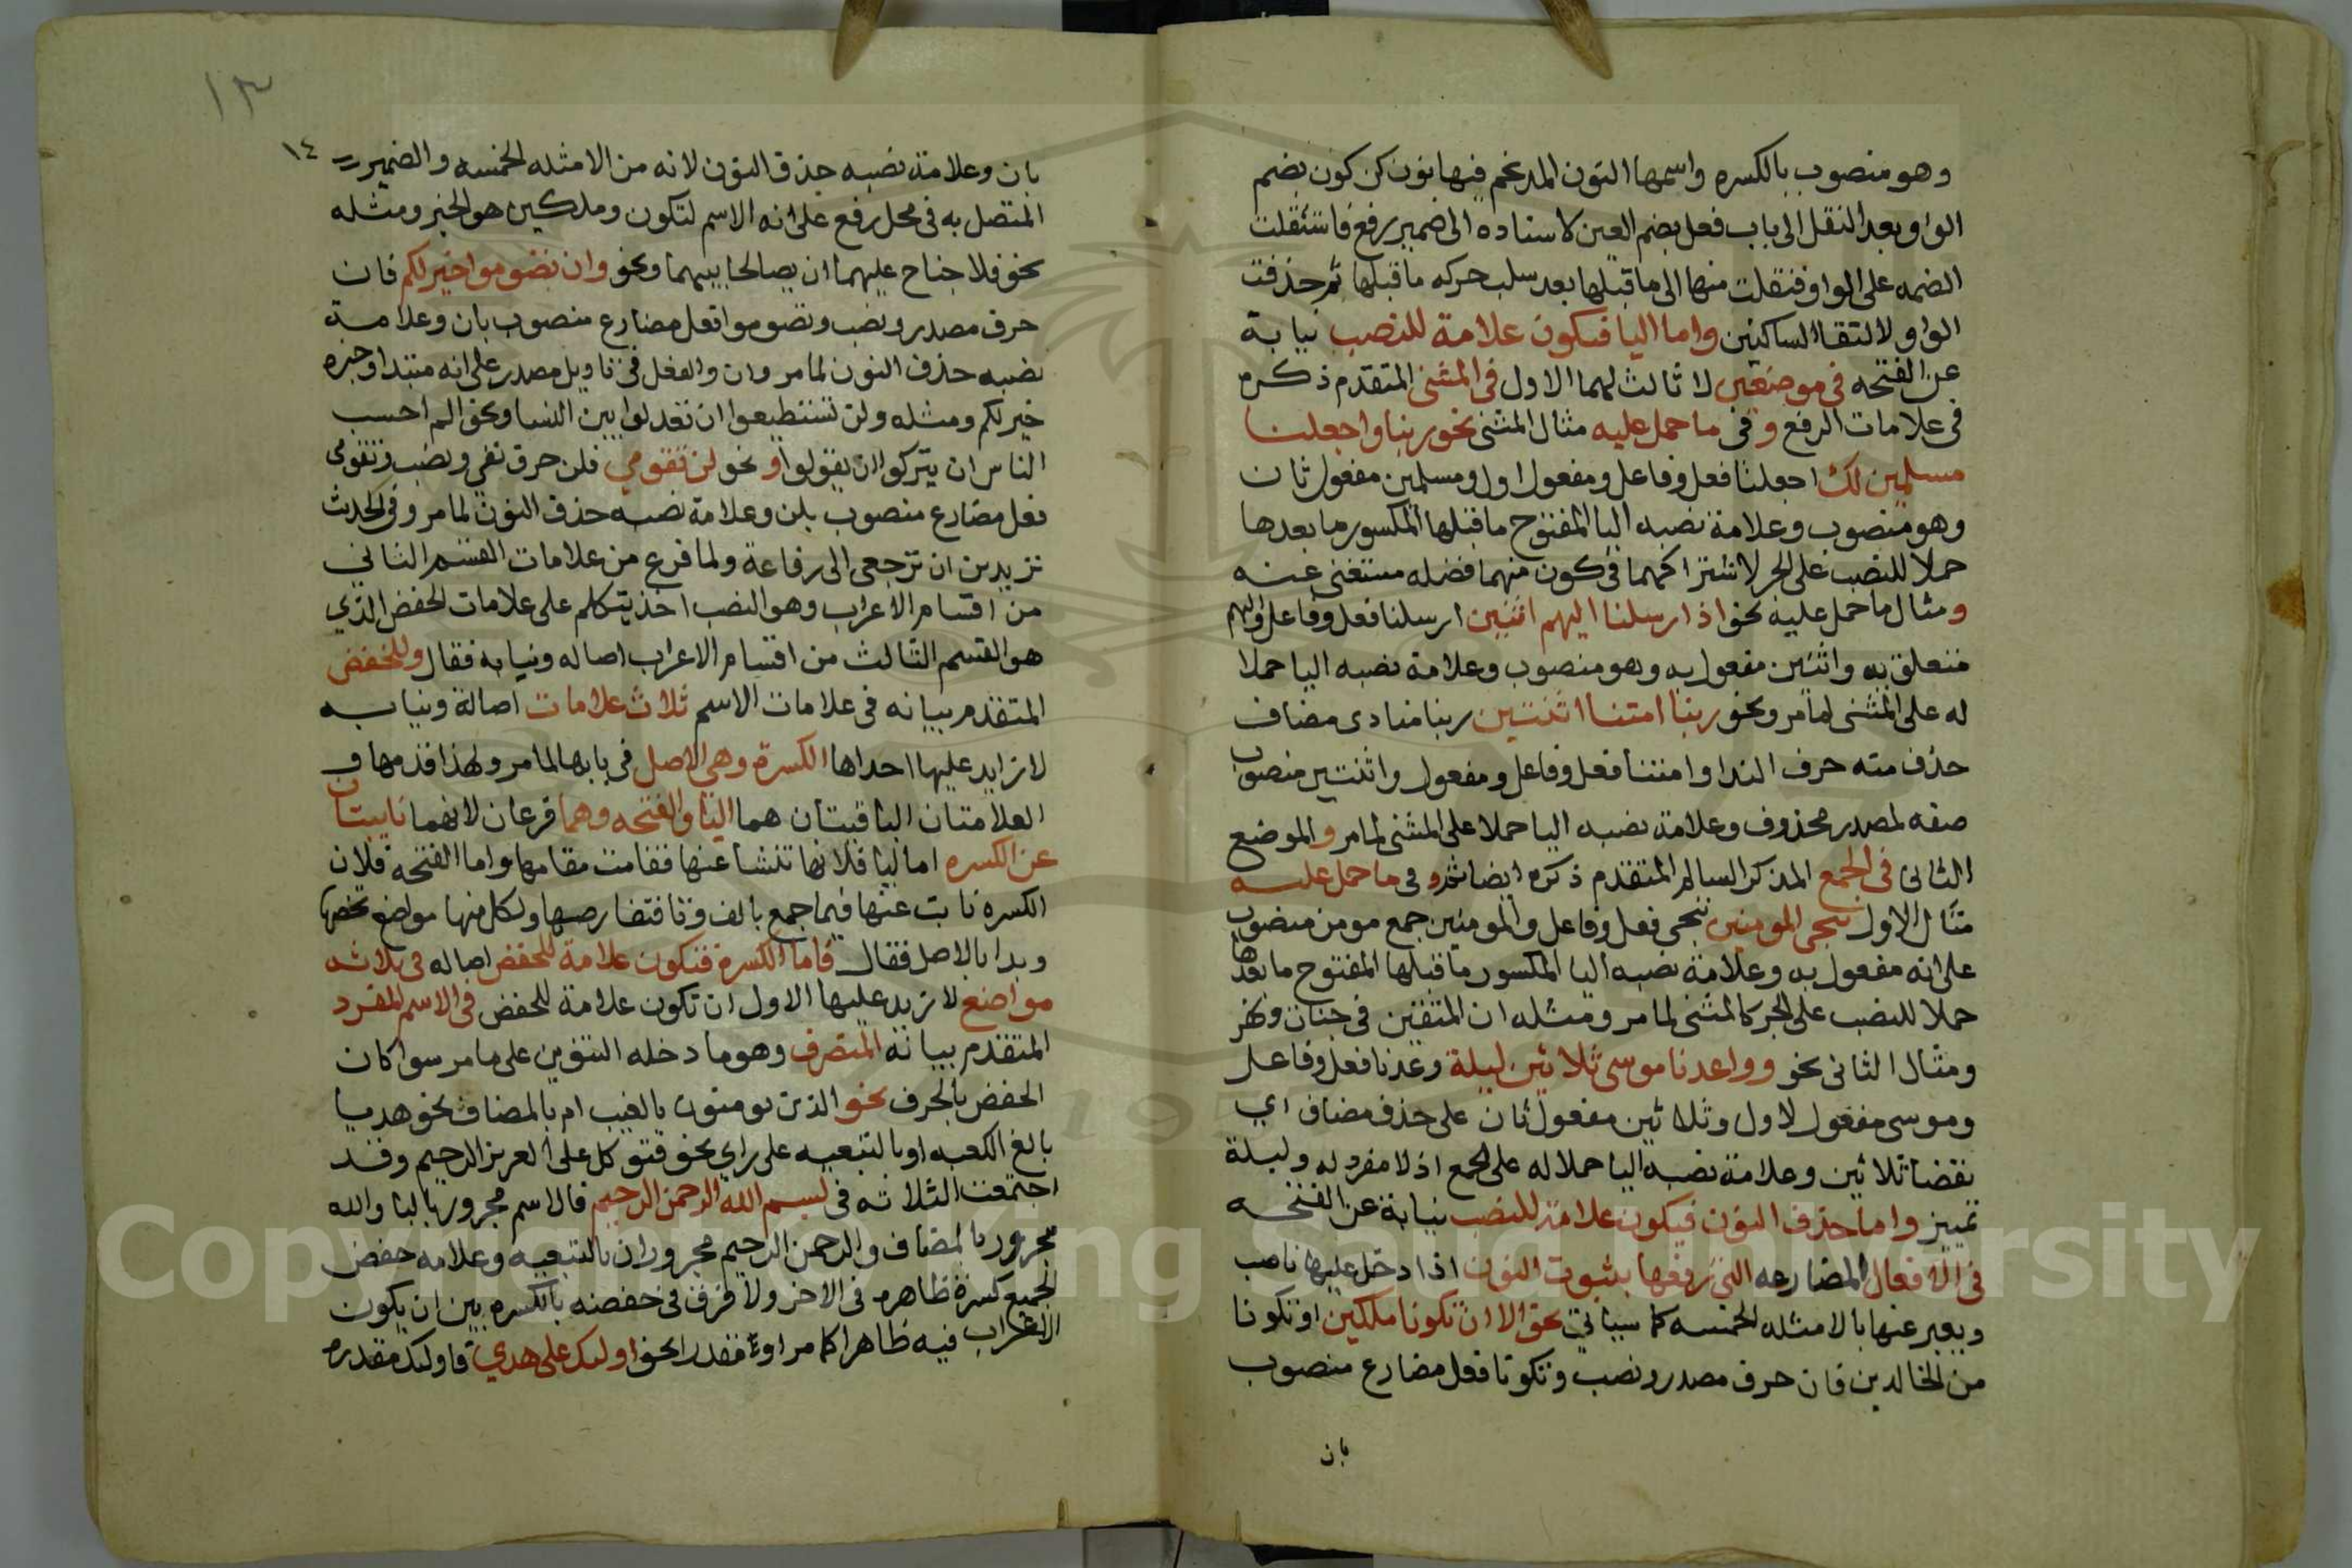 وهو منصوب بالكسره واسمها النون المدغم فيها نون كن كون بضم
الواو وبعد النقل الى باب فعل بضم العين لاسناده الى ضمير رفع فاستثقلت
الضمه على الواو فنقلت منها الى ما قبلها بعد سلب حركه ما قبلها ثم حذفت
الواو لالتقا الساكنين واما اليا فتكون علامة للنصب نيابة
عن الفتحه في موضعين لا ثالث لهما الاول في المثنى المتقدم ذكره
في علامات الرفع وفي ما حمل عليه مثال المثنى نحو ربنا واجعلنا
مسلمين لك اجعلنا فعل وفاعل ومفعول اول ومسلمين مفعول ثان
وهو منصوب وعلامة نصبه اليا المفتوح ما قبلها المكسور ما بعدها
حملا للنصب على الجر لاشتراكهما في كون منهما فضله مستغنى عنه
ومثال ما حمل عليه نحو اذ ارسلنا اليهم اثنين ارسلنا فعل وفاعل واليهم
متعلق به واثنين مفعول به وهو منصوب وعلامة نصبه اليا حملا
له على المثنى لما مر ونحو ربنا امتنا اثنتين ربنا منادى مضاف
حذف منه حرف الندا وامتنا فعل وفاعل ومفعول واثنتين منصوب
صفه لمصدر محذوف وعلامة نصبه اليا حملا على المثنى لما مر والموضع
الثاني في الجمع المذكر السالم المتقدم ذكره ايضا وفي ما حمل عليه
مثال الاول ننجى المومنين ننجى فعل وفاعل والمومنين جمع مومن منصوب
على انه مفعول به وعلامة نصبه اليا المكسور ما قبلها المفتوح ما بعدها
حملا للنصب على الجر كالمثنى لما مر ومثله ان المتقين في جنات ونهر
ومثال الثاني نحو وواعدنا موسى ثلاثين ليلة وعدنا فعل وفاعل
وموسى مفعول اول وثلاثين مفعول ثان على حذف مضاف اي
نقضا ثلاثين وعلامة نصبه اليا حملا له على الجمع اذ لا مفرد له وليلة
تمييز واما حذف النون فيكون علامة للنصب نيابة عن الفتحه
في الافعال المضارعه التي رفعها بثبوت النون اذا دخل عليها ناصب
ويعبر عنها بالامثله الخمسه كما سياتي نحو الا ان تكونا ملكين او تكونا
من الخالدين فان حرف مصدر ونصب وتكونا فعل مضارع منصوب
بان
١٣
١٤
بان وعلامة نصبه حذف النون لانه من الامثله الخمسه والضمير
المتصل به في محل رفع على انه الاسم لتكون وملكين هو الخبر ومثله
نحو فلا جناح عليهما ان يصالحا بينهما ونحو وان تصوموا خير لكم فان
حرف مصدر ونصب وتصوموا فعل مضارع منصوب بان وعلامة
نصبه حذف النون لما مر وان والفعل في تاويل مصدر على انه مبتدا وخبره
خير لكم ومثله ولن تستطيعوا ان تعدلوا بين النسا ونحو الم احسب
الناس ان يتركوا ان يقولوا ونحو لن تقومي فلن حرف نفي ونصب وتقومي
فعل مضارع منصوب بلن وعلامة نصبه حذف النون لما مر وفي الحديث
تريدين ان ترجعي الى رفاعة ولما فرغ من علامات القسم الثاني
من اقسام الاعراب وهو النصب اخذ يتكلم على علامات الخفض الذي
هو القسم الثالث من اقسام الاعراب اصاله ونيابه فقال وللخفض
المتقدم بيانه في علامات الاسم ثلاث علامات اصالة ونيابه
لا زايد عليها احداها الكسرة وهي الاصل في بابها لما مر ولهذا قدمها و
العلامتان الباقيتان هما اليا والفتحه وهما فرعان لانهما نايبتان
عن الكسره اما اليا فلانها تنشا عنها فقامت مقامها واما الفتحة فلان
الكسره نابت عنها فيما جمع بالف وتا ولكل منها مواضع تخصها
وبدا بالاصل فقال فاما الكسرة فتكون علامة للخفض اصاله في ثلاثه
مواضع لا تزيد عليها الاول ان تكون علامة للخفض في الاسم المفرد
المتقدم بيانه المنصرف وهو ما دخله التنوين على ما مر سوا كان
الخفض بالحرف نحو الذين يومنون بالغيب ام بالمضاف نحو هديا
بالغ الكعبه او بالتبعيه على راي نحو فتوكل على العزيز الرحيم وقد
اجتمعت الثلاثه في بسم الله الرحمن الرحيم فالاسم مجرور بالبا والله
مجرور بالمضاف والرحمن الرحيم مجروران بالتبعيه وعلامه خفض
الجميع كسرة ظاهره في الاخر ولا فرق في خفضه بالكسره بين ان يكون
الاعراب فيه ظاهرا كما مر او مقدرا نحو اوليك على هدى فاوليك مقدره
Copyright © King Saud University